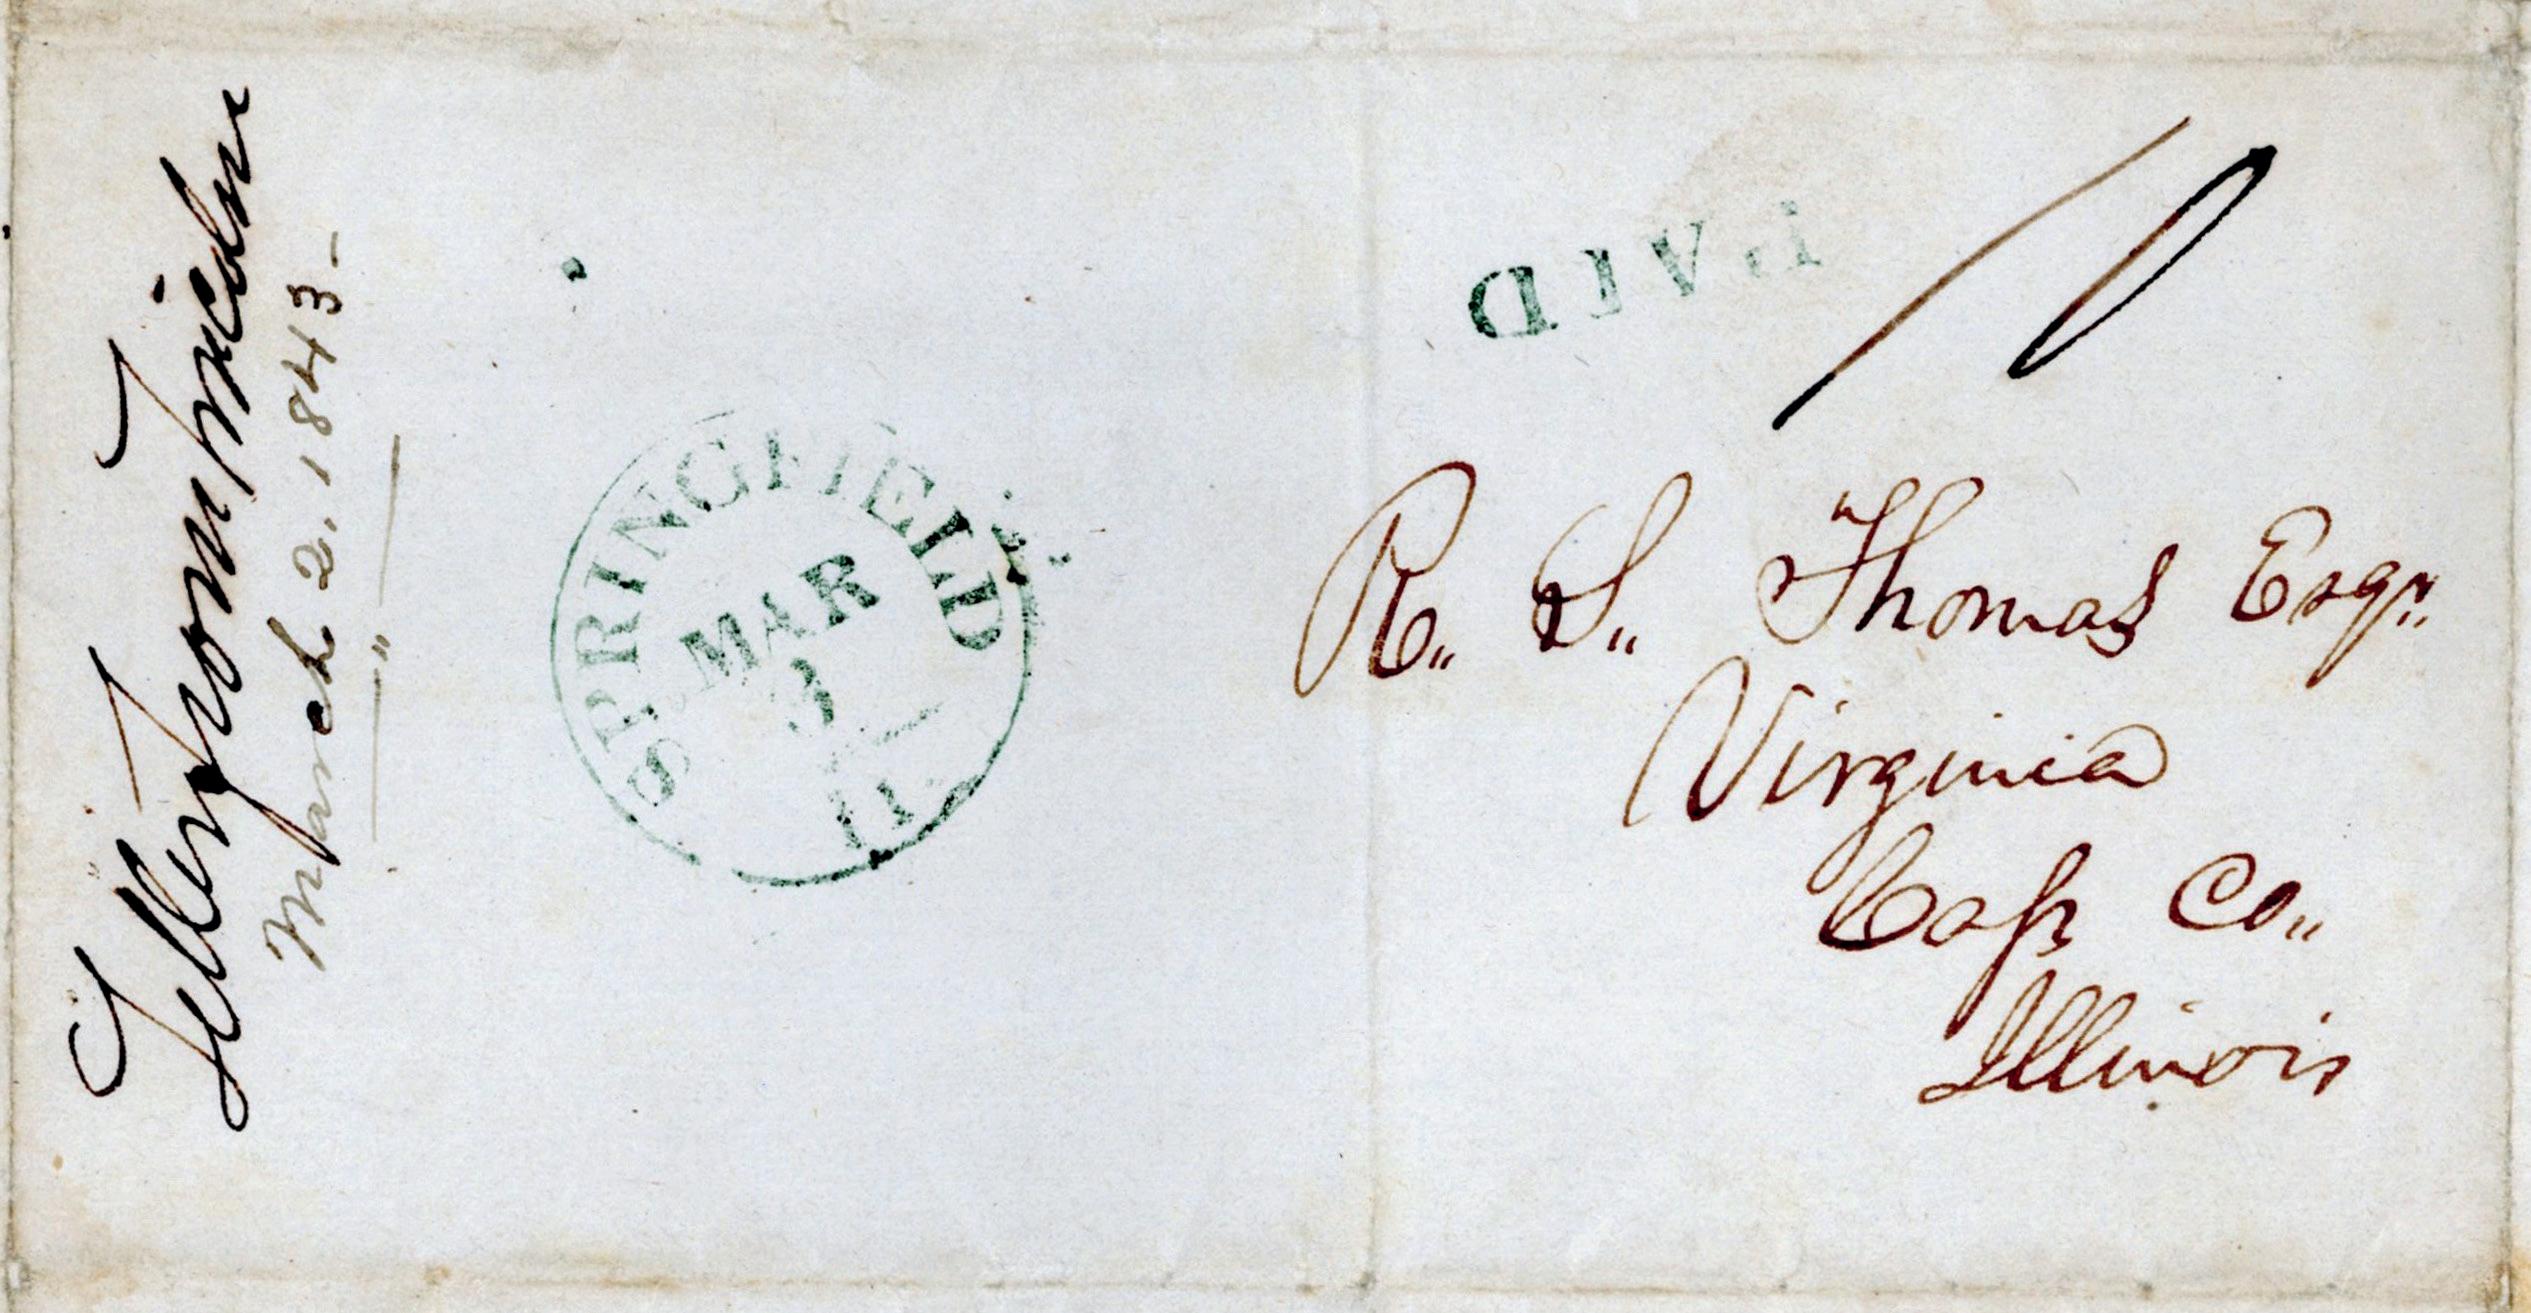 Letter from Lincoln
March 2. 1843
SPRINGFIELD
MAR
3
PAID
10
R. S. Thomas Esqr.
Virginia
Cass Co.
Illinois